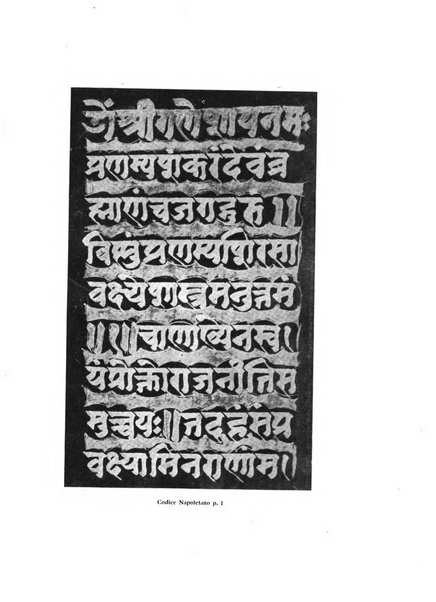 ॐश्रीगणेशायनमः
प्रणम्यशंकरंदेवंब्र
ह्माणंचजगद्गुरुं॥
विस्नुंप्रणम्यशिरसा
वक्ष्येशास्त्रमनुत्तमं
॥१॥चाणाक्येनस्व
यंप्रोक्तोराजनीतिस
मुच्चयः॥तदहंसंप्र
वक्ष्यामिनराणांम॥
Codice Napoletano p. 1